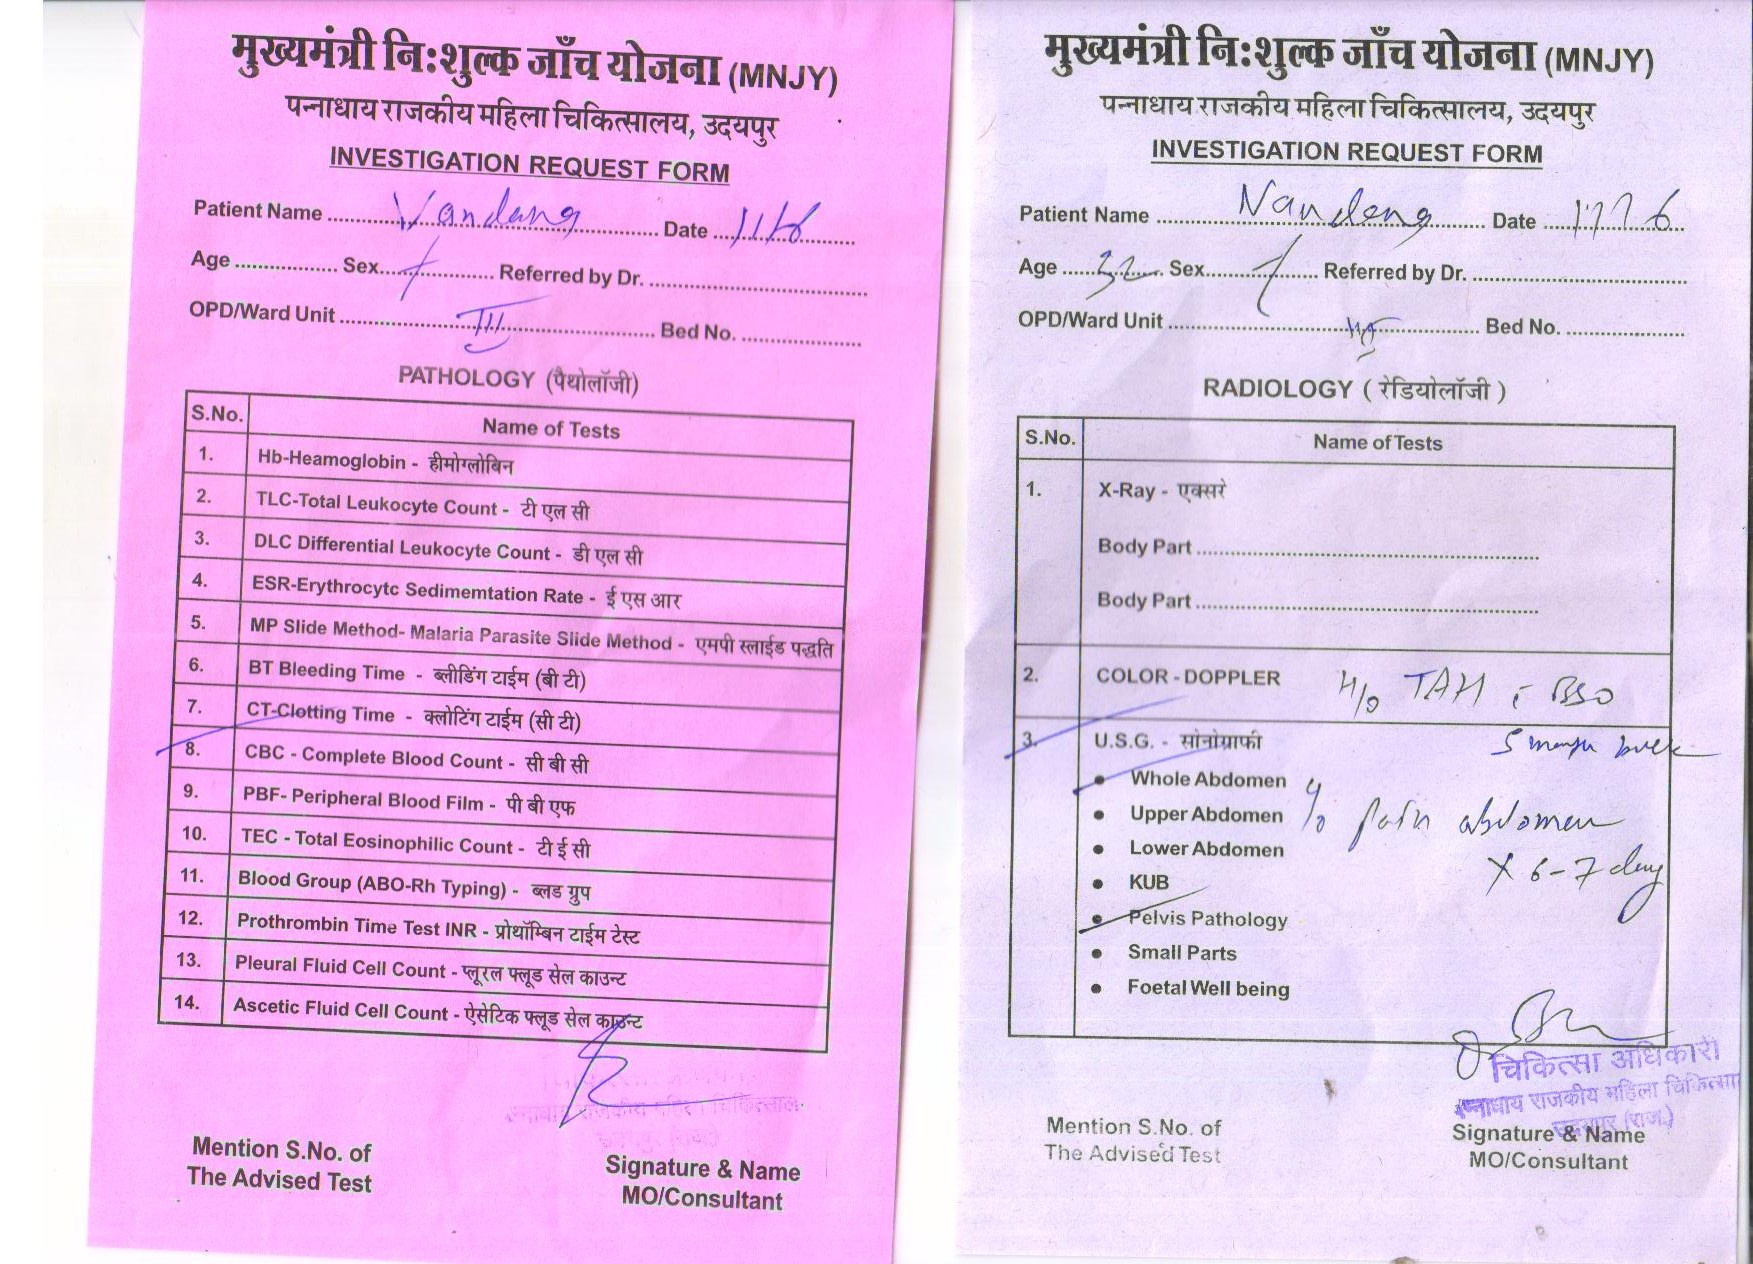 मुख्यमंत्री नि:शुल्क जाँच योजना (MNJY)
पन्नाधाय राजकीय महिला चिकित्सालय, उदयपुर
INVESTIGATION REQUEST FORM
Patient Name Vandana Date
Age Sex f Referred by Dr.
OPD/Ward Unit III Bed No.
PATHOLOGY (पैथोलॉजी)
S.No. Name of Tests
1. Hb-Heamoglobin - हीमोग्लोबिन
2. TLC-Total Leukocyte Count - टी एल सी
3. DLC Differential Leukocyte Count - डी एल सी
4. ESR-Erythrocytc Sedimemtation Rate - ई एस आर
5. MP Slide Method- Malaria Parasite Slide Method - एमपी स्लाईड पद्धति
6. BT Bleeding Time - ब्लीडिंग टाईम (बी टी)
7. CT-Clotting Time - क्लोटिंग टाईम (सी टी)
8. CBC - Complete Blood Count - सी बी सी
9. PBF- Peripheral Blood Film - पी बी एफ
10. TEC - Total Eosinophilic Count - टी ई सी
11. Blood Group (ABO-Rh Typing) - ब्लड ग्रुप
12. Prothrombin Time Test INR - प्रोथॉम्बिन टाईम टेस्ट
13. Pleural Fluid Cell Count - प्लूरल फ्लूड सेल काउन्ट
14. Ascetic Fluid Cell Count - ऐसेटिक फ्लूड सेल काउन्ट
राजकीय महिला चिकित्सालय
Mention S.No. of
The Advised Test
Signature & Name
MO/Consultant
मुख्यमंत्री नि:शुल्क जाँच योजना (MNJY)
पन्नाधाय राजकीय महिला चिकित्सालय, उदयपुर
INVESTIGATION REQUEST FORM
Patient Name Vandana Date
Age 32 Sex f Referred by Dr.
OPD/Ward Unit Bed No.
RADIOLOGY ( रेडियोलॉजी )
S.No. Name of Tests
1. X-Ray - एक्सरे
Body Part
Body Part
2. COLOR - DOPPLER H/o TAH BSO
3. U.S.G. - सोनोग्राफी 5 back
• Whole Abdomen
• Upper Abdomen c/o pain abdomen
• Lower Abdomen x 6-7 day
• KUB
• Pelvis Pathology
• Small Parts
• Foetal Well being
चिकित्सा अधिकारी
पन्नाधाय राजकीय महिला चिकित्सा
उदयपुर (राज.)
Mention S.No. of
The Advised Test
Signature & Name
MO/Consultant